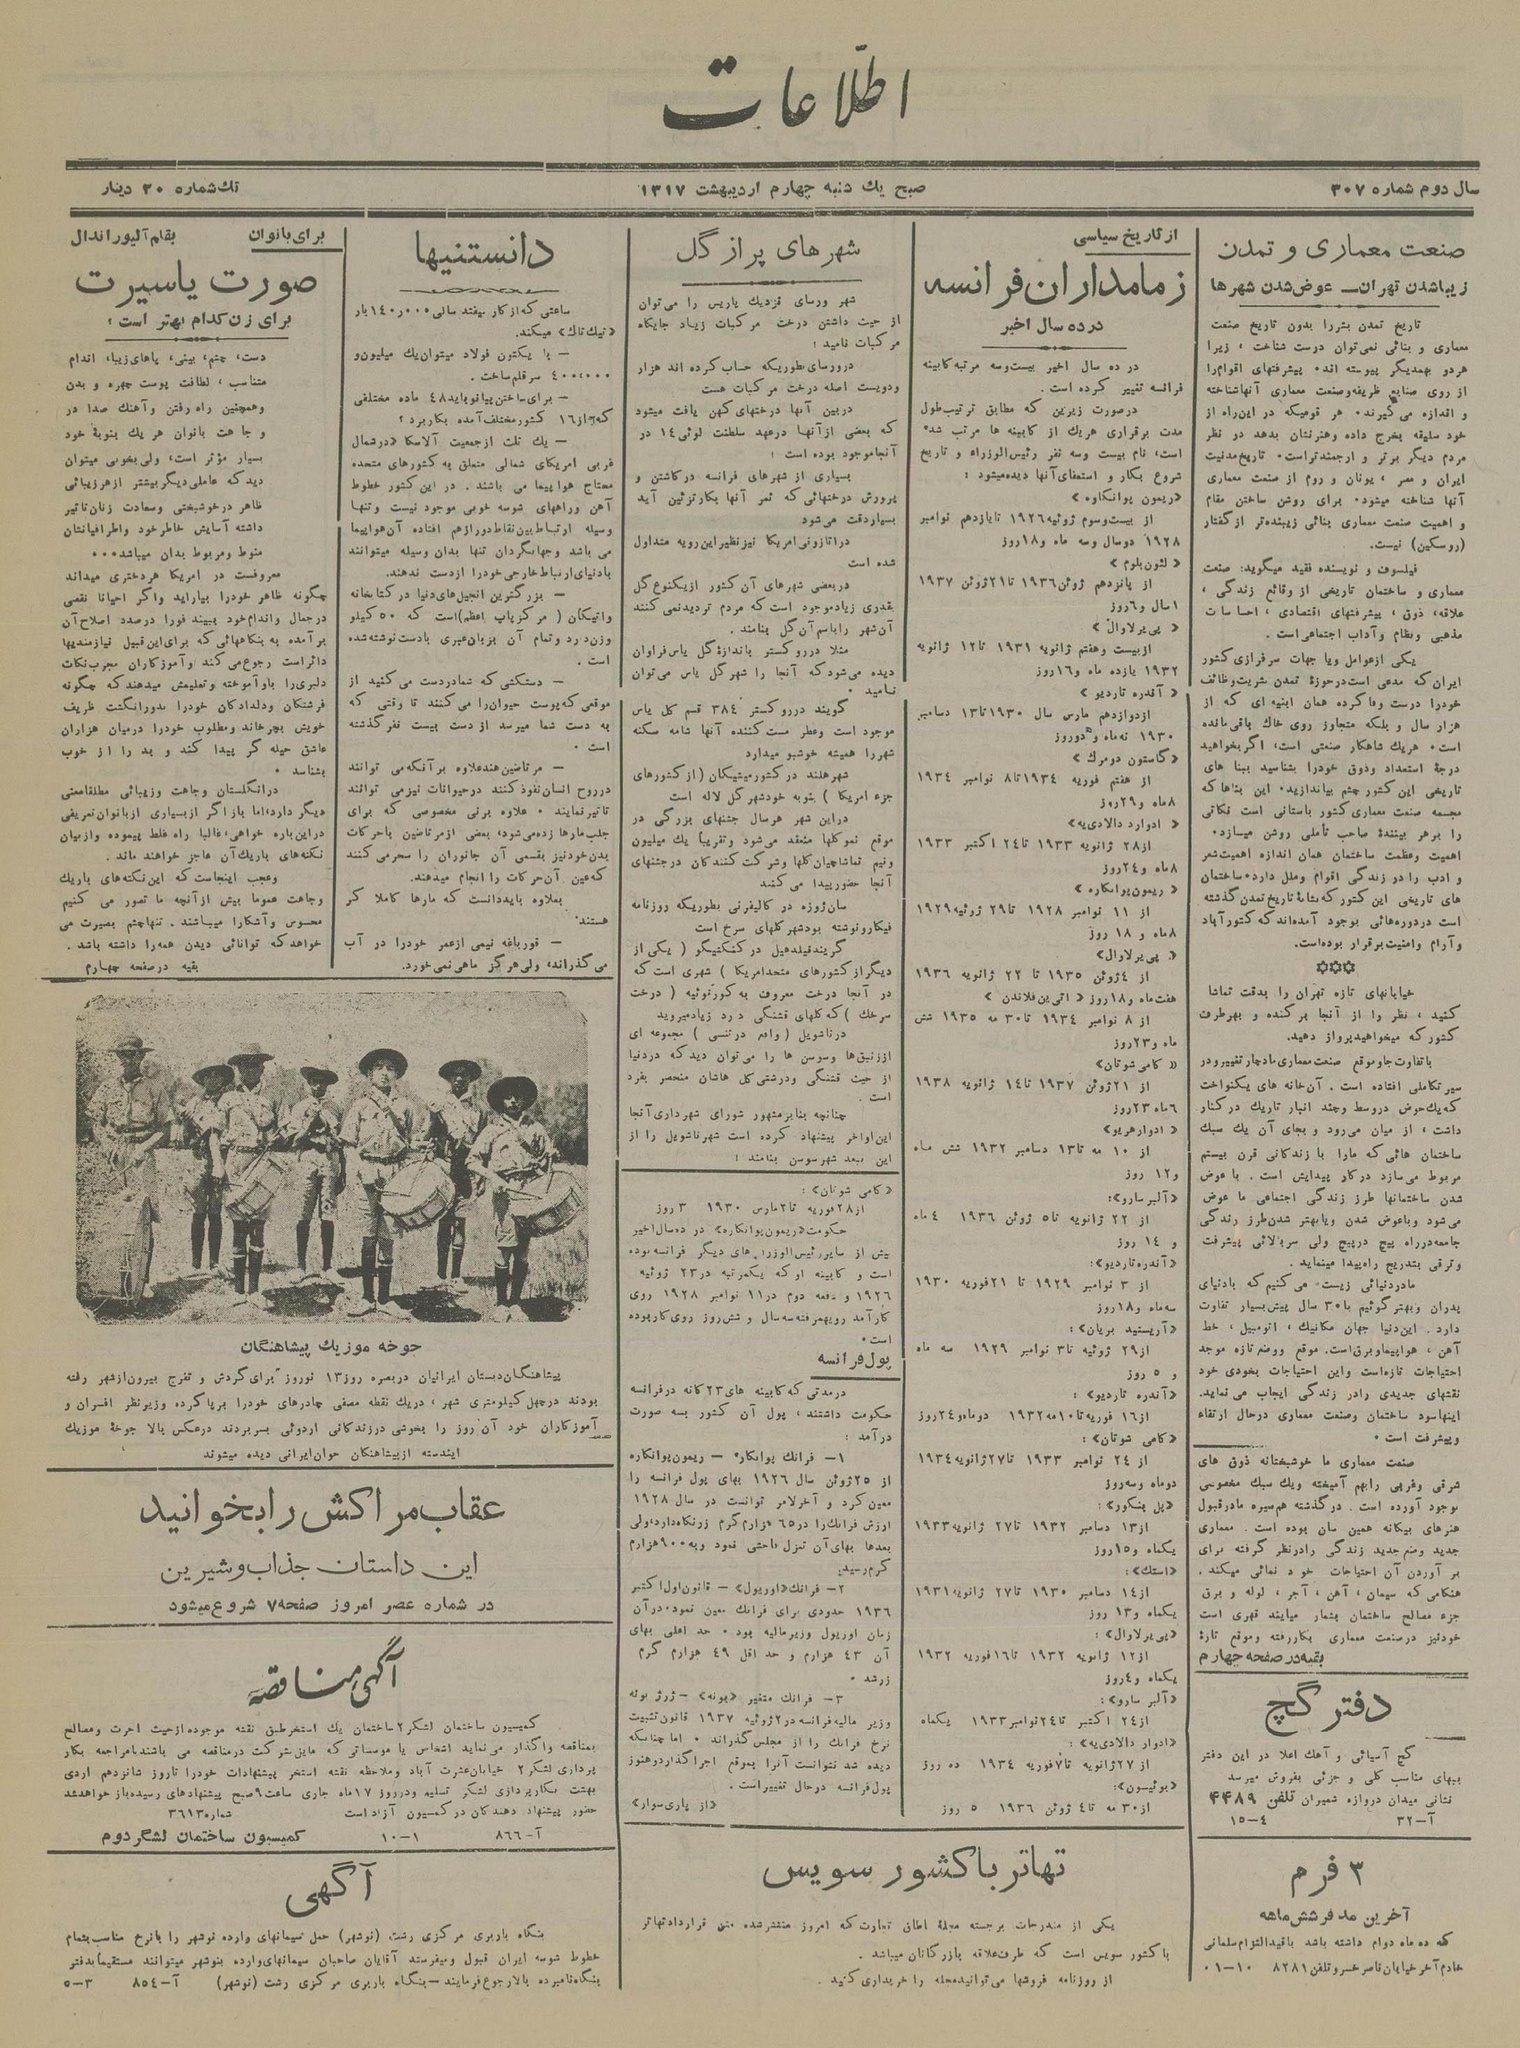 اطلاعات
سال دوم شماره ۳۰۷
صبح یك شنبه چهارم اردیبهشت ۱۳۱۷
تك شماره ۲۰ دینار
صنعت معماری و تمدن
زیباشدن تهران ــ عوض‌شدن شهرها
تاریخ تمدن بشررا بدون تاریخ صنعت
معماری و بنائی نمی‌توان درست شناخت ، زیرا
هردو بهمدیگر پیوسته اند. پیشرفتهای اقوام‌را
از روی صنایع ظریفه وصنعت معماری آنهاشناخته
و اندازه می‌گیرند. هر قومیکه در این‌راه از
خود سلیقه بخرج داده وهنرنشان بدهد در نظر
مردم دیگر برتر و ارجمندتراست. تاریخ‌مدنیت
ایران و مصر ، یونان و روم از صنعت معماری
آنها شناخته میشود. برای روشن ساختن مقام
و اهمیت صنعت معماری بنائی زیبنده‌تر ازگفتار
(روسکین) نیست.
فیلسوف و نویسنده فقید میگوید: صنعت
معماری و ساختمان تاریخی از وقائع زندگی ،
علاقه، ذوق ، پیشرفتهای اقتصادی ، احساسات
مذهبی ونظام وآداب اجتماعی است.
یکی ازعوامل ویا جهات سرفرازی کشور
ایران که مدعی است درحوزهٔ تمدن بشریت وظائف
خودرا درست وفا کرده همان ابنیه ای که از
هزار سال و بلکه متجاوز روی خاك باقی‌مانده
است. هریك شاهکار صنعتی است، اگر بخواهید
درجهٔ استعداد وذوق خودرا بشناسید ببنا های
تاریخی این کشور چشم بیاندازید. این بناها که
مجسمه صنعت معماری کشور باستانی است نکاتی
را برهر بینندهٔ صاحب تأملی روشن میسازد.
اهمیت وعظمت ساختمان همان اندازه اهمیت‌شعر
و ادب را در زندگی اقوام وملل دارد. ساختمان
های تاریخی این کشور که بمثابهٔ تاریخ تمدن گذشته
است دردوره‌هائی بوجود آمده‌اند که کشورآباد
وآرام وامنیت برقرار بوده‌است.
خیابانهای تازه تهران را بدقت تماشا
کنید ، نظر را از آنجا برکنده و بهرطرف
کشور که میخواهید پرواز دهید.
باتفاوت جاوموقع صنعت معماری مادچار تغییر و در
سیر تکاملی افتاده است . آن خانه های یکنواخت
که یك حوض دروسط وچند انبار تاریك در کنار
داشت ، از میان می‌رود و بجای آن یك سبك
ساختمان هائی که مارا با زندگانی قرن بیستم
مربوط می‌سازد درکار پیدایش است . با عوض
شدن ساختمانها طرز زندگی اجتماعی ما عوض
می‌شود وباعوض شدن ویابهتر شدن طرز زندگی
جامعه در راه پیچ درپیچ ولی سربالائی پیشرفت
وترقی بتدریج راه پیدا مینماید.
مادردنیائی زیست می‌کنیم که بادنیای
پدران وبهتر گوئیم با۳۰ سال پیش بسیار تفاوت
دارد. این‌دنیا جهان مکانیك ، اتومبیل ، خط
آهن ، هواپیما وبرق است. موقع ووضع تازه موجد
احتیاجات تازه‌است واین احتیاجات بخودی خود
نقشهای جدیدی رادر زندگی ایجاب می‌نماید.
اینها سود ساختمان وصنعت معماری درحال ارتقاء
وپیشرفت است .
صنعت معماری ما خوشبختانه ذوق های
شرقی وغربی رابهم آمیخته ویك سبك مخصوصی
بوجود آورده است . درگذشته هم سیره مادرقبول
هنرهای بیگانه همین سان بوده است . معماری
جدید وضع جدید زندگی رادرنظر گرفته برای
بر آوردن آن احتیاجات خود نمائی میکند.
هنگامی که سیمان ، آهن ، آجر ، لوله و برق
جزء مصالح ساختمان بشمار میایند قهری است
خودنیز درصنعت معماری بکاررفته وموقع تازهٔ
بقیه در صفحه چهارم
دفتر گچ
گچ آسیائی و آهك اعلا در این دفتر
ببهای مناسب کلی و جزئی بفروش میرسد
نشانی میدان دروازه شمیران تلفن ۴۴۸۹
آ-۳۲ ۴-۱۵
۳ فرم
آخرین مد فرشش‌ماهه
که ده ماه دوام داشته باشد باقیدالتزام سلمانی
خادم آخر خیابان ناصر خسرو تلفن ۸۲۸۱
از تاریخ سیاسی
زمامداران فرانسه
در ده سال اخیر
در ده سال اخیر بیست‌وسه مرتبه کابینه
فرانسه تغییر کرده است .
درصورت زیرین که مطابق ترتیب طول
مدت برقراری هریك از کابینه ها مرتب شده
است، نام بیست وسه نفر رئیس‌الوزراء و تاریخ
شروع بکار و استعفای آنها دیده‌میشود :
«ریمون پوانکاوه»
از بیست‌وسوم ژوئیه ۱۹۲۶ تایازدهم نوامبر
۱۹۲۸ دوسال وسه ماه و۱۸روز
« لئون‌بلوم »
از پانزدهم ژوئن ۱۹۳۶ تا۲۱ژوئن ۱۹۳۷
۱سال و۶روز
« پی‌یرلاوال »
ازبیست وهفتم ژانویه ۱۹۳۱ تا۱۲ ژانویه
۱۹۳۲ یازده ماه و۱۶روز
« آندره تاردیو »
ازدوازدهم مارس سال ۱۹۳۰ تا۱۳ دسامبر
۱۹۳۰ نه‌ماه و دوروز
«گاستون دومرك»
از هفتم فوریه ۱۹۳۴ تا ۸ نوامبر ۱۹۳۴
۸ماه و۲۹روز
« ادوارد دالادیه»
از۲۸ ژانویه ۱۹۳۳ تا۲۴ اکتبر ۱۹۳۳
۸ماه و۲۴روز
«ریمون‌پوانکاره »
از ۱۱ نوامبر ۱۹۲۸ تا۲۹ ژوئیه۱۹۲۹
۸ماه و ۱۸ روز
« پی‌یرلاوال»
از ۴ژوئن ۱۹۳۵ تا ۲۲ ژانویه ۱۹۳۶
هفت‌ماه و۱۸روز « اتی‌ین‌فلاندن »
از ۸ نوامبر ۱۹۳۴ تا۳۰ مه ۱۹۳۵ شش
ماه و۲۳روز
«کامی‌شوتان»
از ۲۱ژوئن ۱۹۳۷ تا۱۴ ژانویه ۱۹۳۸
۶ماه ۲۳روز
«ادوارهریو»
از ۱۰ مه تا۱۳ دسامبر ۱۹۳۲ شش ماه
و۱۲ روز
«آلبرسارو»:
از ۲۲ ژانویه تا۵ ژوئن ۱۹۳۶ ۴ماه
و ۱۴ روز
«آندره‌تاردیو»:
از ۳ نوامبر ۱۹۲۹ تا ۲۱فوریه ۱۹۳۰
سه‌ماه و۱۸روز
«آریستید بریان»:
از۲۹ ژوئیه تا۳ نوامبر ۱۹۲۹ سه ماه
و ۵ روز
«آندره تاردیو»:
از۱۶ فوریه تا۱۰مه۱۹۳۲ دوماه‌و۲۴روز
«کامی شوتان»:
از ۲۴ نوامبر ۱۹۳۳ تا۲۷ژانویه۱۹۳۴
دوماه وسه‌روز
«پل بنکور»:
از۱۳ دسامبر ۱۹۳۲ تا۲۷ ژانویه۱۹۳۳
یکماه و۱۵روز
«استك»:
از۱۴ دسامبر ۱۹۳۰ تا۲۷ ژانویه ۱۹۳۱
یکماه و۱۳ روز
«پی‌یرلاوال»:
از۱۲ ژانویه ۱۹۳۲ تا۱۶فوریه ۱۹۳۲
یکماه و۴روز
«آلبر سارو»:
از۲۴ اکتبر تا۲۴نوامبر۱۹۳۳ یکماه
«ادوار دالادیه»:
از۲۷ژانویه تا۷فوریه ۱۹۳۴ ده روز
«بوئیسون»:
از۳۰ مه تا۴ ژوئن ۱۹۳۶ ۵ روز
شهرهای پر از گل
شهر ورسای نزدیك پاریس را می‌توان
از حیث داشتن درخت مرکبات زیاد جایگاه
مرکبات نامید !
درورسای بطوریکه حساب کرده اند هزار
ودویست اصله درخت مرکبات هست
دربین آنها درختهای کهن یافت میشود
که بعضی ازآنها درعهد سلطنت لوئی ۱۴ در
آنجاموجود بوده است !
بسیاری از شهرهای فرانسه درکاشتن و
پرورش درختهائی که ثمر آنها بکارتزئین آید
بسیاردقت می‌شود
دراتازونی امریکا نیز نظیر این رویه متداول
شده است
دربعضی شهرهای آن کشور ازیکنوع گل
بقدری زیادموجود است که مردم تردیدنمی کنند
آن‌شهر راباسم آن‌گل بنامند .
مثلا درروکستر باندازهٔ گل یاس فراوان
دیده می‌شود که آنجا را شهر گل یاس می‌توان
نامید .
گویند درروکستر ۳۸۴ قسم گل یاس
موجود است وعطر مست کننده آنها شامه سکنه
شهررا همیشه خوشبو میدارد
شهرهلند در کشورمیشیگان (از کشورهای
جزء امریکا ) بنوبه خودشهر گل لاله است
دراین شهر هرسال جشنهای بزرگی در
موقع نمو گلها منعقد می‌شود وتقریبا یك میلیون
ونیم تماشاچیان گلها وشرکت کنندگان درجشنهای
آنجا حضور پیدا می کنند
سان‌ژوزه در کالیفرنی بطوریکه روزنامه
فیگارونوشته بودشهر گلهای سرخ است
گریندفیلدهیل درکنکتیگو ( یکی از
دیگر از کشورهای متحدامریکا ) شهری است که
در آنجا درخت معروف به کورنوئیه ( درخت
سرخك ) که گلهای قشنگی دارد زیادمیروید
درناشویل ( واقع درتنسی ) مجموعه ای
اززنبق‌ها وسوسن ها را می‌توان دید که دردنیا
از حیث قشنگی ودرشتی گل هاشان منحصر بفرد
است .
چنانچه بنابرمشهور شورای شهرداری‌آنجا
این اواخر پیشنهاد کرده است شهرناشویل را از
این ببعد شهرسوسن بنامند !
«کامی شوتان»:
از۲۸فوریه تا۲مارس ۱۹۳۰ ۳ روز
حکومت «ریمون‌پوانکاره» در ده‌سال‌اخیر
بیش از سایر رئیس الوزراء های دیگر فرانسه‌بوده
است و کابینه او که یکمرتبه در۲۳ ژوئیه
۱۹۲۶ و دفعه دوم در۱۱ نوامبر ۱۹۲۸ روی
کارآمد رویهمرفته‌سه سال و شش‌روز روی کاربوده
است.
پول فرانسه
درمدتی که کابینه های ۲۳گانه در فرانسه
حکومت داشتند ، پول آن کشور بسه صورت
درآمد :
۱- فرانك پوانکاره - ریمون‌پوانکاره
از ۲۵ژوئن سال ۱۹۲۶ بهای پول فرانسه را
معین کرد و آخرالامر توانست در سال ۱۹۲۸
ارزش فرانك را در۶۵ هزارم گرم زرنگاه‌دارد، ولی
بعدها بهای آن تنزل فاحشی نمود و به۹۰۰هزارم
گرم‌رسید.
۲- فرانك«اوریول» - قانون‌اول اکتبر
۱۹۳۶ حدودی برای فرانك معین نمود. درآن
زمان اوریول وزیرمالیه بود . حد اعلی بهای
آن ۴۳ هزارم و حد اقل ۴۹ هزارم گرم
زرشد .
۳- فرانك متغیر «بونه» - ژرژ بونه
وزیر مالیه فرانسه در ۲ژوئیه ۱۹۳۷ قانون تثبیت
نرخ فرانك را از مجلس گذراند . اما چنانکه
دیده شد نتوانست آنرا بموقع اجراگذارد و هنوز
پول‌فرانسه درحال تغییراست.
«از پاری‌سوار»
تهاتر باکشور سویس
یکی از مندرجات برجسته مجلهٔ اطاق تجارت که امروز منتشرشده متن قراردادتهاتر
باکشور سویس است که طرف علاقه بازرگانان میباشد .
از روزنامه فروشها می‌توانید مجله را خریداری کنید .
دانستنیها
ساعتی که از کار نیفتد سالی ۱۴۰٫۰۰۰ بار
«تیك‌تاك» میکند.
- با یکتون فولاد میتوان یك میلیون و
۴۰۰٫۰۰۰ سرقلم ساخت.
- برای‌ساختن پیانو باید ۴۸ ماده مختلفی
که از ۱۶ کشور مختلف آمده بکاربرد ؟
- یك ثلث ازجمعیت آلاسکا «درشمال
غربی امریکای شمالی متعلق به کشورهای متحده
محتاج هواپیما می باشند . در این کشور خطوط
آهن وراههای شوسه خوبی موجود نیست وتنها
وسیله ارتباط بین نقاط دورازهم افتاده آن هواپیما
می باشد وجهانگردان تنها بدان وسیله میتوانند
بادنیای‌ارتباط خارجی خودرا ازدست ندهند.
- بزرگترین انجیل‌های دنیا در کتابخانه
واتیکان ( مرکز پاپ اعظم)است که ۵۰کیلو
وزن‌دارد وتمام آن بزبان‌عبری بادست نوشته‌شده
است .
- دستکشی که شمادردست می‌کنید از
موقعی که پوست حیوان را می‌کنند تا وقتی که
به دست شما میرسد از دست بیست نفر گذشته
است .
- مرتاضین هند علاوه بر آنکه می توانند
درروح انسان نفوذ کنند در حیوانات نیز می توانند
تاثیر نمایند . علاوه برنی مخصوصی که برای
جلب مارها زده‌می‌شود، بعضی از مرتاضین باحرکات
بدن‌خودنیز بقسمی آن جانوران را سحر می کنند
که عین آن حرکات را انجام میدهند.
بعلاوه بایددانست که مارها کاملا کر
هستند.
- قورباغه نیمی ازعمر خودرا در آب
می‌گذراند، ولی هرگز ماهی نمی خورد.
برای بانوان
بقلم آلیور اندال
صورت یاسیرت
برای زن کدام بهتر است ؟
دست، چشم، بینی، پاهای‌زیبا، اندام
متناسب ، لطافت پوست چهره و بدن
وهمچنین راه رفتن وآهنك صدا در
وجاهت بانوان هریك بنوبهٔ خود
بسیار مؤثر است، ولی بخوبی میتوان
دید که عاملی دیگر بیشتر از هرزیبائی
ظاهر درخوشبختی وسعادت زنان تاثیر
داشته آسایش خاطرخود واطرافیانشان
منوط ومربوط بدان میباشد...
معروفست در امریکا هردختری میداند
چگونه ظاهر خودرا بیاراید واگر احیانا نقصی
درجمال واندام‌خود ببیند فورا درصدد اصلاح‌آن
برآمده به بنگاههائی که برای این قبیل نیازمندیها
دائراست رجوع‌می کند وآموزکاران مجرب نکات
دلبری را باوآموخته وتعلیمش میدهند که چگونه
فرشتگان ودلدادگان خودرا بدورانگشت ظریف
خویش بچرخاند ومطلوب خودرا درمیان هزاران
عاشق حیله گر پیدا کند و بد را از خوب
بشناسد .
درانگلستان وجاهت وزیبائی مطلقامعنی
دیگر دارد، اما باز اگر ازبسیاری ازبانوان تعریفی
دراین‌باره خواهی، غالبا راه غلط پیموده وازبیان
نکته‌های باریك‌آن عاجز خواهند ماند .
وعجب اینجاست که این نکته‌های باریك
وجاهت عموما بیش از آنچه ما تصور می کنیم
محسوس وآشکارا میباشند . تنهاچشم بصیرت می
خواهد که توانائی دیدن همه‌را داشته باشد .
بقیه درصفحه چهارم
جوخه موزیك پیشاهنگان
پیشاهنگان‌دبستان ایرانیان دربصره روز۱۳ نوروز برای گردش و تفرج بیرون‌ازشهر رفته
بودند درچهل کیلومتری شهر ، دریك نقطه مصفی چادرهای خودرا برپا کرده وزیرنظر افسران و
آموزکاران خود آن روز را بخوشی درزندگانی اردوئی بسربردند درعکس بالا جوخهٔ موزیك
ایندسته از پیشاهنگان جوان‌ایرانی دیده میشوند
عقاب مراکش را بخوانید
این داستان جذاب وشیرین
در شماره عصر امروز صفحه۷ شروع میشود
آگهی مناقصه
کمیسیون ساختمان لشکر۲ساختمان یك استخر طبق نقشه موجوده از حیث اجرت ومصالح
بمناقصه واگذار می نماید اشخاص یا موسساتی که مایل‌شرکت درمناقصه می باشند بامراجعه بکار
پردازی لشکر۲ خیابان‌عشرت آباد وملاحظه نقشه استخر پیشنهادات خودرا تاروز شانزدهم اردی
بهشت بکارپردازی لشکر تسلیم ودرروز ۱۷ماه جاری ساعت۹صبح پیشنهادهای رسیده‌باز خواهدشد
حضور پیشنهاد دهندگان درکمسیون آزاداست شماره۳۶۱۳
آ-۸۶۶ ۱-۱۰ کمیسیون ساختمان لشگردوم
آگهی
بنگاه باربری مرکزی رشت (نوشهر) حمل سیمانهای وارده نوشهر را بانرخ مناسب بتمام
خطوط شوسه ایران قبول ومیفرستد آقایان صاحبان سیمانهای وارده بنوشهر میتوانند مستقیماً بدفتر
بنگاه نامبرده بالا رجوع فرمایند - بنگاه باربری مرکزی رشت (نوشهر) آ-۸۵۴ ۳-۵